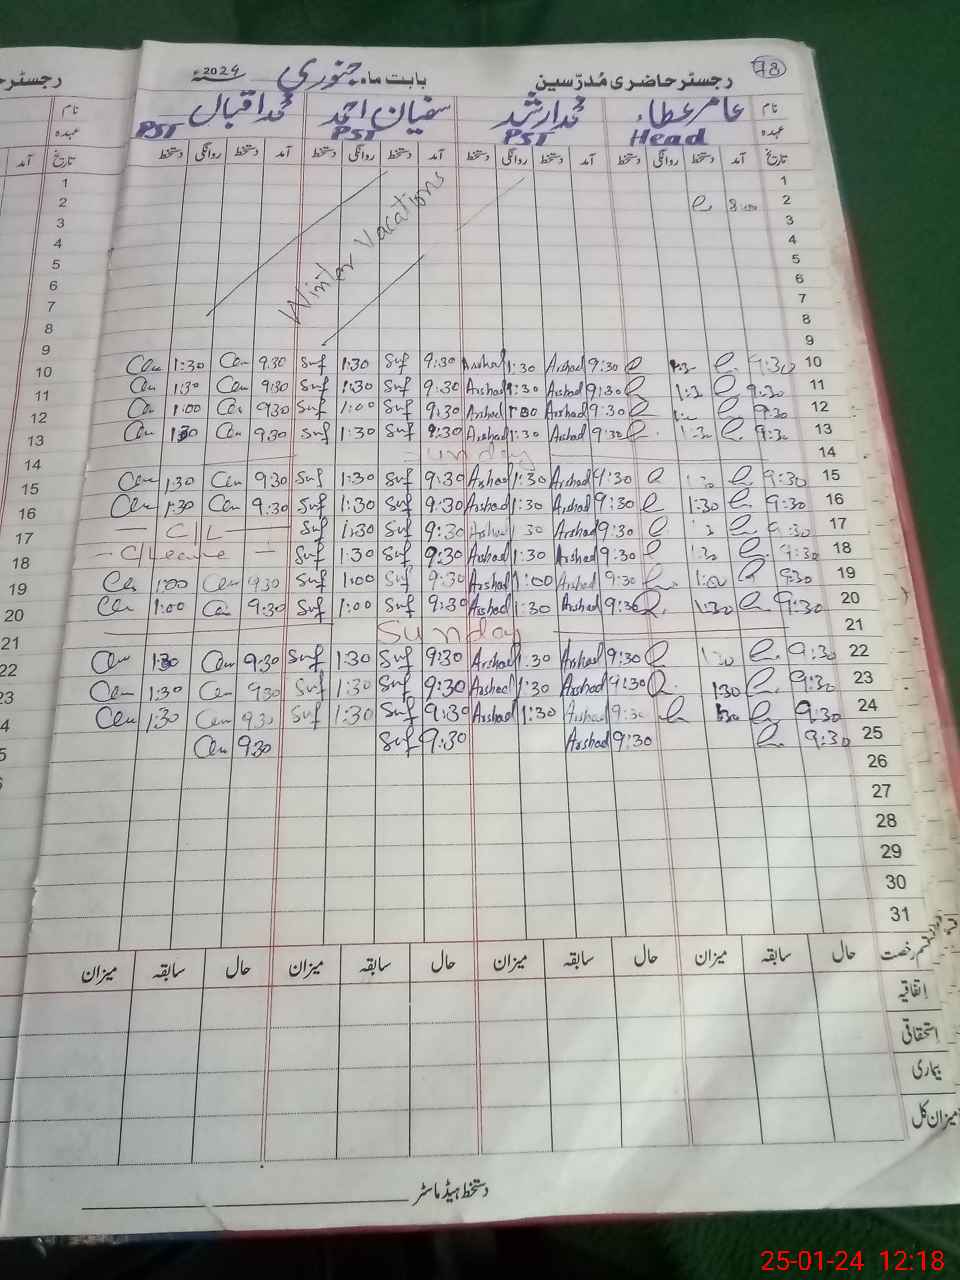 78
رجسٹر حاضری مُدرّسین بابت ماہ جنوری 2024
نام عامر عطاء محمد ارشد سفیان احمد محمد اقبال
عہدہ Head PST PST PST
تاریخ آمد دستخط روانگی دستخط آمد دستخط روانگی دستخط آمد دستخط روانگی دستخط آمد دستخط روانگی دستخط
1
2 8:00
3
4
5
6
7
8
9
Winter Vacations
10 9:30 9:30 Arshad 1:30 Arshad 9:30 Suf 1:30 Suf 9:30 1:30
11 9:30 1:30 9:30 Arshad 1:30 Arshad 9:30 Suf 1:30 Suf 9:30 1:30
12 9:30 9:30 Arshad 1:00 Arshad 9:30 Suf 1:00 Suf 9:30 1:00
13 9:30 1:30 9:30 Arshad 1:30 Arshad 9:30 Suf 1:30 Suf 9:30 1:30
14 Sunday
15 9:30 1:30 9:30 Arshad 1:30 Arshad 9:30 Suf 1:30 Suf 9:30 1:30
16 9:30 1:30 9:30 Arshad 1:30 Arshad 9:30 Suf 1:30 Suf 9:30 1:30
17 9:30 9:30 Arshad 1:30 Arshad 9:30 Suf 1:30 Suf C/L
18 9:30 1:30 9:30 Arshad 1:30 Arshad 9:30 Suf 1:30 Suf C/Leave
19 9:30 1:00 9:30 Arshad 1:00 Arshad 9:30 Suf 1:00 Suf 9:30 1:00
20 9:30 1:30 9:30 Arshad 1:30 Arshad 9:30 Suf 1:00 Suf 9:30 1:00
21 Sunday
22 9:30 1:30 9:30 Arshad 1:30 Arshad 9:30 Suf 1:30 Suf 9:30 1:30
23 9:30 1:30 9:30 Arshad 1:30 Arshad 9:30 Suf 1:30 Suf 9:30 1:30
24 9:30 9:30 Arshad 1:30 Arshad 9:30 Suf 1:30 Suf 9:30 1:30
25 9:30 9:30 Arshad 9:30 Suf 9:30
26
27
28
29
30
31
قسم رخصت حال سابقہ میزان حال سابقہ میزان حال سابقہ میزان حال سابقہ میزان
اتفاقیہ
استحقاقی
بیماری
میزان کل
دستخط ہیڈ ماسٹر
25-01-24 12:18